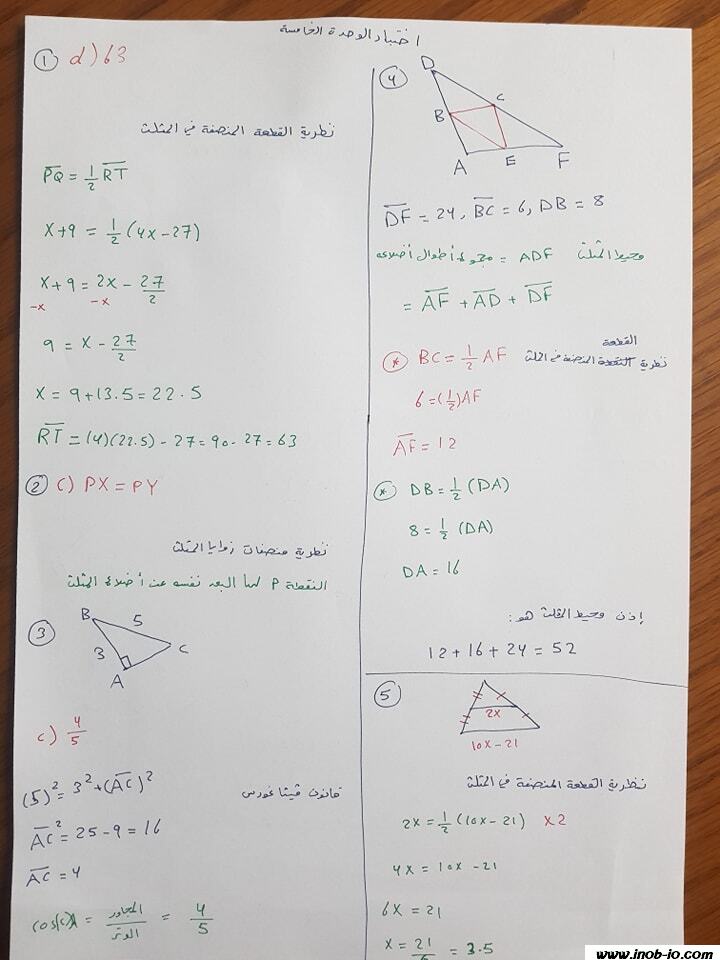 اختبار الوحدة الخامسة
① d) 63
نظرية القطعة المنصفة في المثلث
PQ = 1/2 RT
x+9 = 1/2 (4x-27)
x+9 = 2x - 27/2
-x -x
9 = x - 27/2
x = 9+13.5 = 22.5
RT = (4)(22.5) - 27 = 90 - 27 = 63
② c) PX = PY
نظرية منصفات زوايا المثلث
النقطة P لها البعد نفسه عن أضلاع المثلث
③
B
5
3
C
A
c) 4/5
(5)² = 3² + (AC)² قانون فيثاغورس
AC² = 25 - 9 = 16
AC = 4
cos(C) = المجاور/الوتر = 4/5
④
D
B
C
A
E
F
DF = 24, BC = 6, DB = 8
محيط المثلث ADF = مجموع أطوال أضلاعه
= AF + AD + DF
القطعة
* BC = 1/2 AF نظرية المنصفة في المثلث
6 = (1/2) AF
AF = 12
* DB = 1/2 (DA)
8 = 1/2 (DA)
DA = 16
إذن محيط المثلث هو:
12 + 16 + 24 = 52
⑤
2x
10x - 21
نظرية القطعة المنصفة في المثلث
2x = 1/2 (10x - 21) x2
4x = 10x - 21
6x = 21
x = 21/6 = 3.5
www.inob-io.com